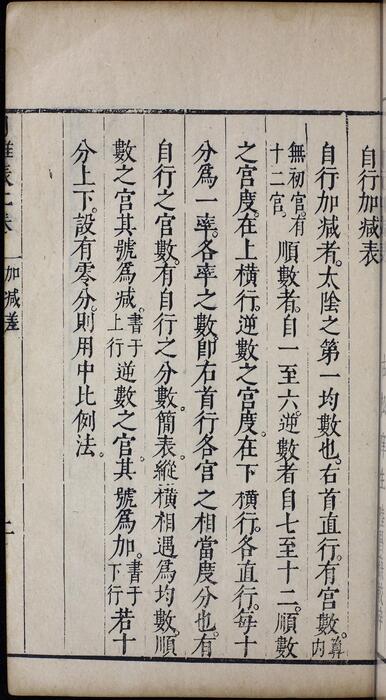 自行加減表
自行加減者。太陰之第一均數也。右首直行。有宮數。算内
無初宮。有十二宮。順數者。自一至六。逆數者自七至十二。順數
之宮度。在上橫行。逆數之宮度。在下橫行。各直行。每十
分爲一率。各率之數。即右首行各宮之相當度分也。有
自行之宮數。有自行之分數。簡表。縱橫相遇爲均數。順
數之宮其號爲減。書于上行。逆數之宮其號爲加。書于下行。若十
分上下。設有零分。則用中比例法。
加減差
二